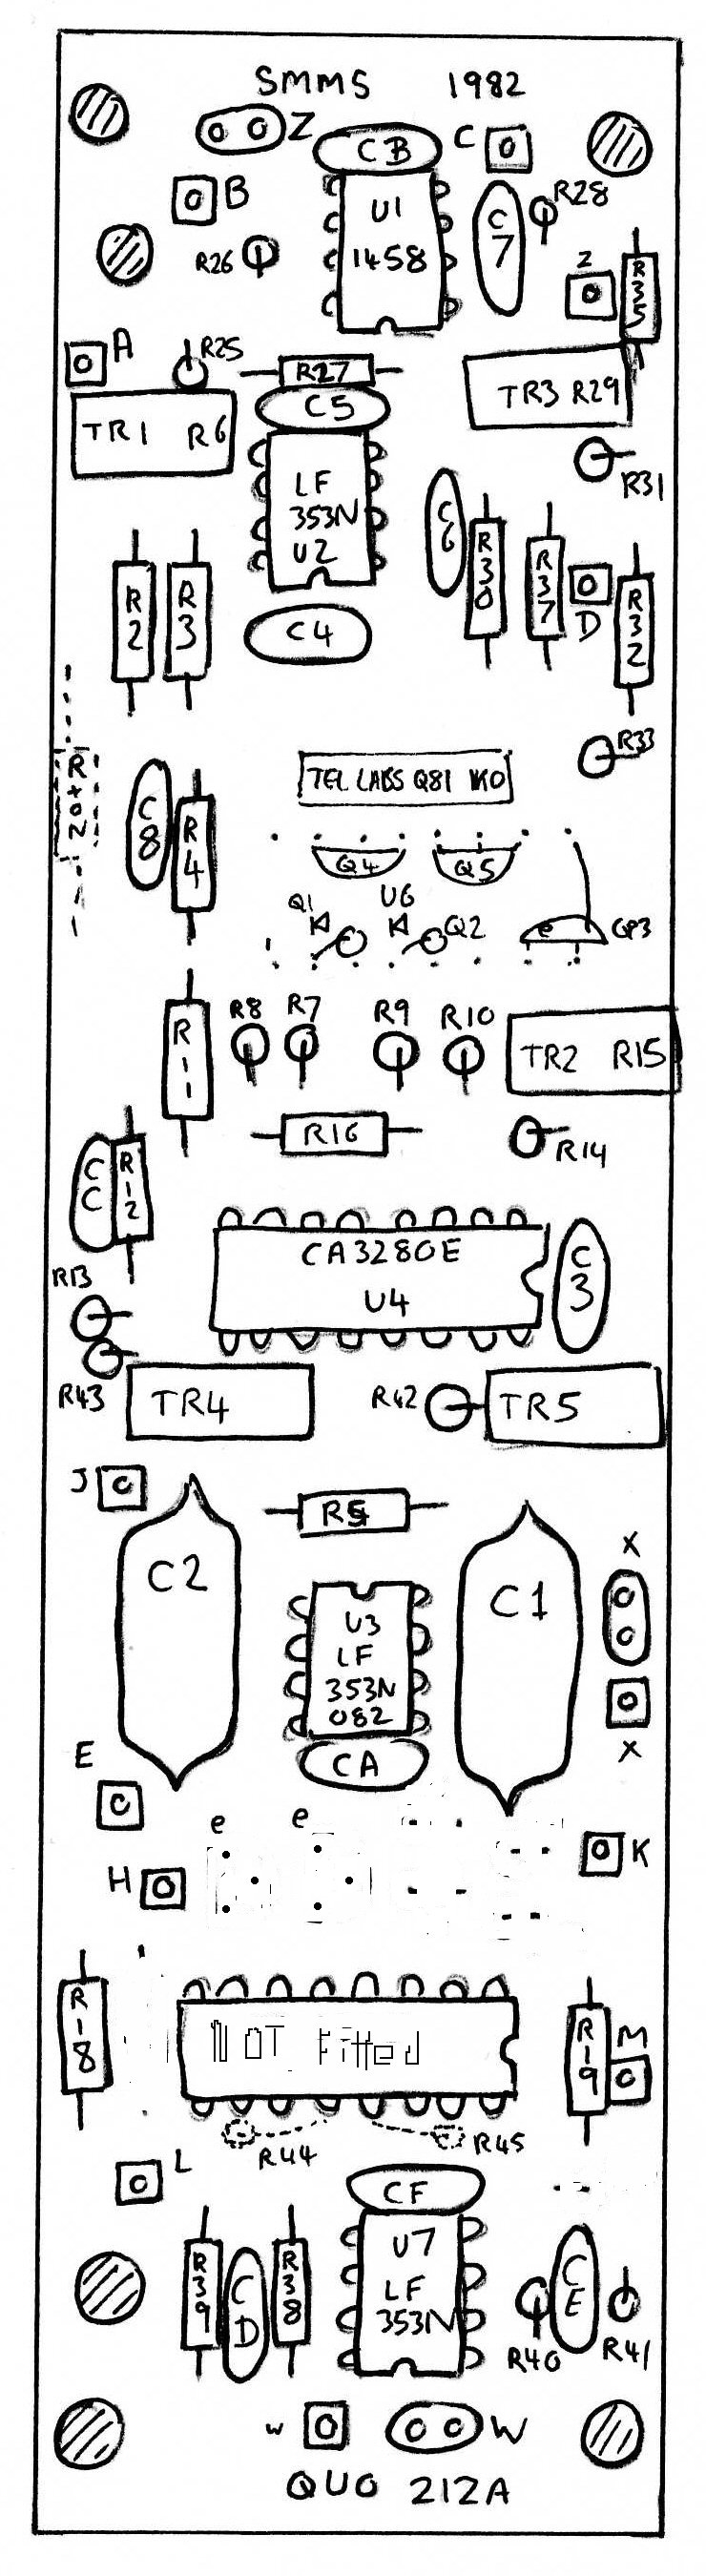 SMMS 1982
Z
CB
C
B
U1
1458
C7
R28
R26
Z
R35
A
R25
R27
C5
TR3 R29
TR1 R6
R31
LF
353N
U2
C6
R30
R37
D
R32
R2
R3
C4
R33
TEL LABS Q81 1K0
C8
R4
Q4
Q5
Q1
U6
Q2
e
R11
R8
R7
R9
R10
TR2 R15
R16
R14
CC
R12
CA3280E
U4
C3
R13
R43
TR4
R42
TR5
J
R5
C2
C1
X
U3
LF
353N
082
CA
X
E
e
e
K
H
R18
NOT Fitted
R19
M
R44
R45
L
CF
U7
LF
353N
R39
CD
R38
CE
R40
R41
W
W
QUO 212A